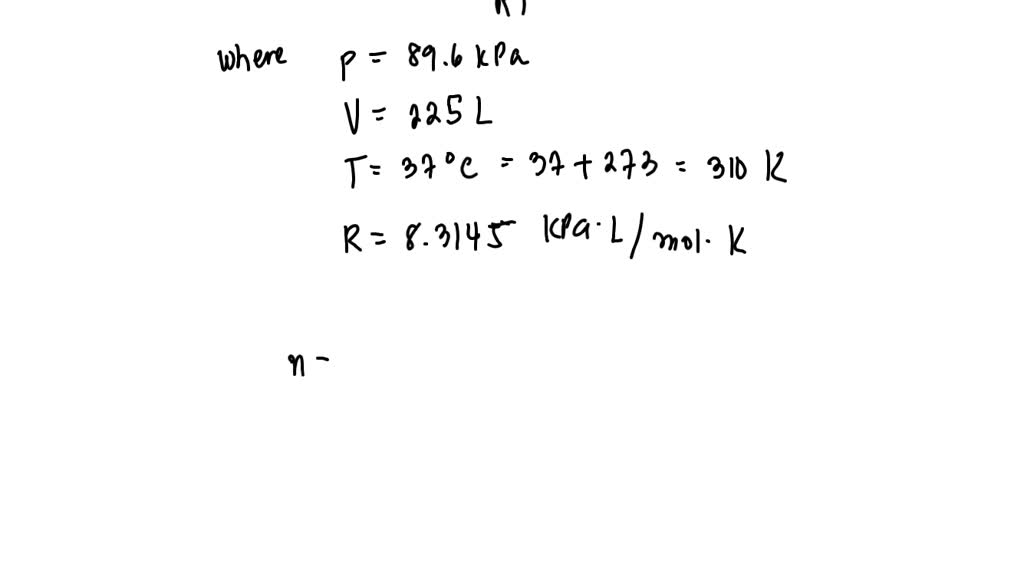 RT
where P = 89.6 kPa
V = 225 L
T = 37°C = 37 + 273 = 310 K
R = 8.3145 kPa·L/mol·K
n -